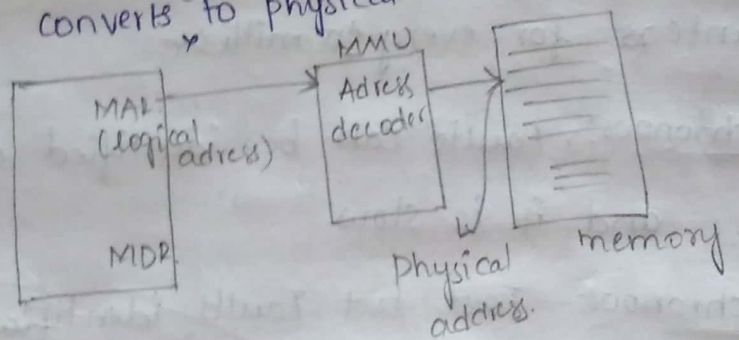 converts to physical
MMU
MAR
(logical
adress)
Adress
decoder
MDR
Physical
address.
memory